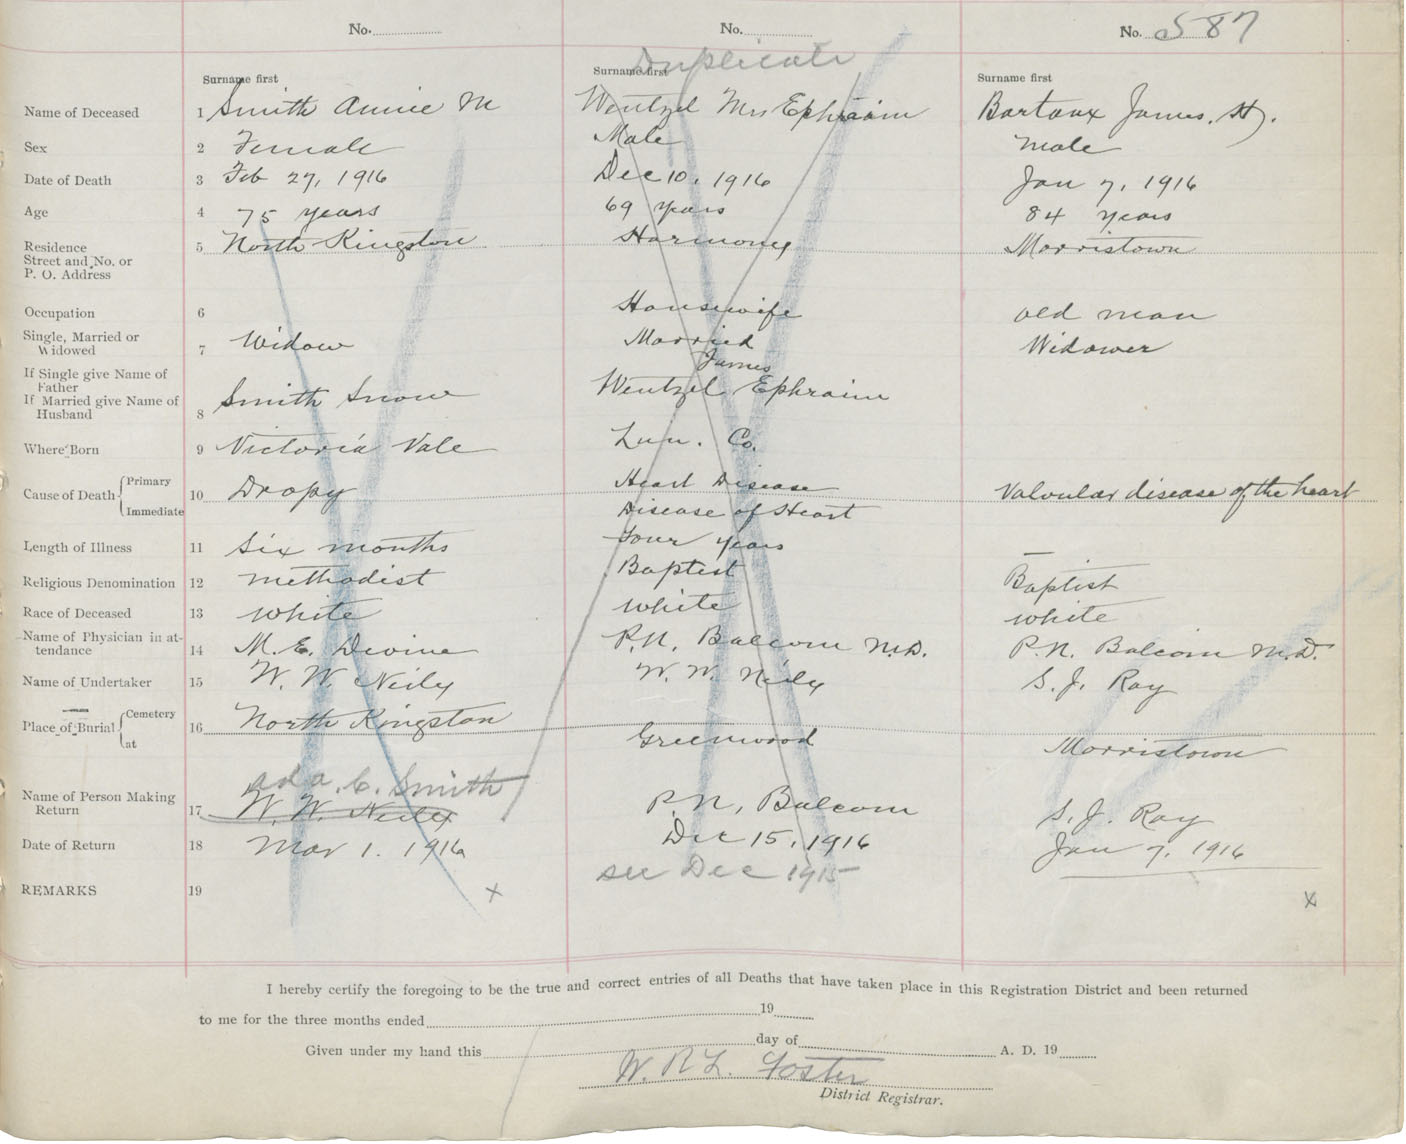 No. No. No. 587
Duplicate
Surname first Surname first Surname first
Name of Deceased 1 Smith Annie M Wentzel Mrs Ephraim Bartaux James. H.
Sex 2 Female Male male
Date of Death 3 Feb 27, 1916 Dec 10, 1916 Jan 7, 1916
Age 4 75 years 69 years 84 years
Residence 5 North Kingston Harmony Morristown
Street and No. or
P. O. Address
Occupation 6 Housewife old man
Single, Married or
Widowed 7 Widow Married Widower
James
If Single give Name of
Father
If Married give Name of
Husband 8 Smith Snow Wentzel Ephraim
Where Born 9 Victoria Vale Lun. Co.
Primary
Cause of Death 10 Dropy Heart Disease Valvular disease of the heart
Immediate Disease of Heart
Length of Illness 11 Six months Four years –
Religious Denomination 12 methodist Baptist Baptist
Race of Deceased 13 white white white
Name of Physician in at-
tendance 14 M. E. Devine P.N. Balcom M.D. P.N. Balcom M.D.
Name of Undertaker 15 W. W. Neily W. W. Neily S. J. Ray
Cemetery
Place of Burial 16 North Kingston Greenwood Morristown
at
Ada. C. Smith
Name of Person Making
Return 17 W. W. Neily P. N, Balcom S. J. Ray
Date of Return 18 Mar 1. 1916 Dec 15, 1916 Jan 7, 1916
see Dec 1915
REMARKS 19 x x
I hereby certify the foregoing to be the true and correct entries of all Deaths that have taken place in this Registration District and been returned
to me for the three months ended 19
Given under my hand this day of A. D. 19
W. R L. Foster
District Registrar.